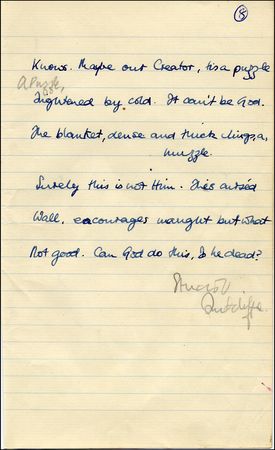 8
Knows. Maybe our Creator, tis a puzzle
A Puzzle,
Tightened by cold. It can't be God.
The blanket, dense and thick clings, a,
muzzle.
Surely this is not Him. This cursed
Wall, encourages naught but what
Not good. Can God do this, Is he dead?
Stuart
Sutcliffe